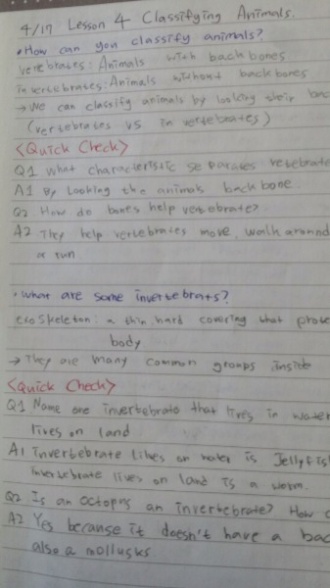 4/17 Lesson 4 Classifying Animals.
• How can you classify animals?
vertebrates: Animals with back bones
invertebrates: Animals without back bones
→ We can classify animals by looking their bac
(vertebrates vs in vertebrates)
<Quick Check>
Q1 what characteristic se parates vetebrate
A1 By Looking the animals back bone.
Q2 How do bones help vertebrate?
A2 They help vertebrates move, walk around
or run
• What are some invertebrats?
exoskeleton: a thin, hard covering that prote
body
→ They are many common groups inside
<Quick Check>
Q1 Name one invertebrate that lives in water
lives on land
A1 invertebrate lives on water is Jellyfis
invertebrate lives on land is a worm.
Q2 Is an octopus an invertebrate? How
A2 Yes because it doesn't have a bac
also a mollusks